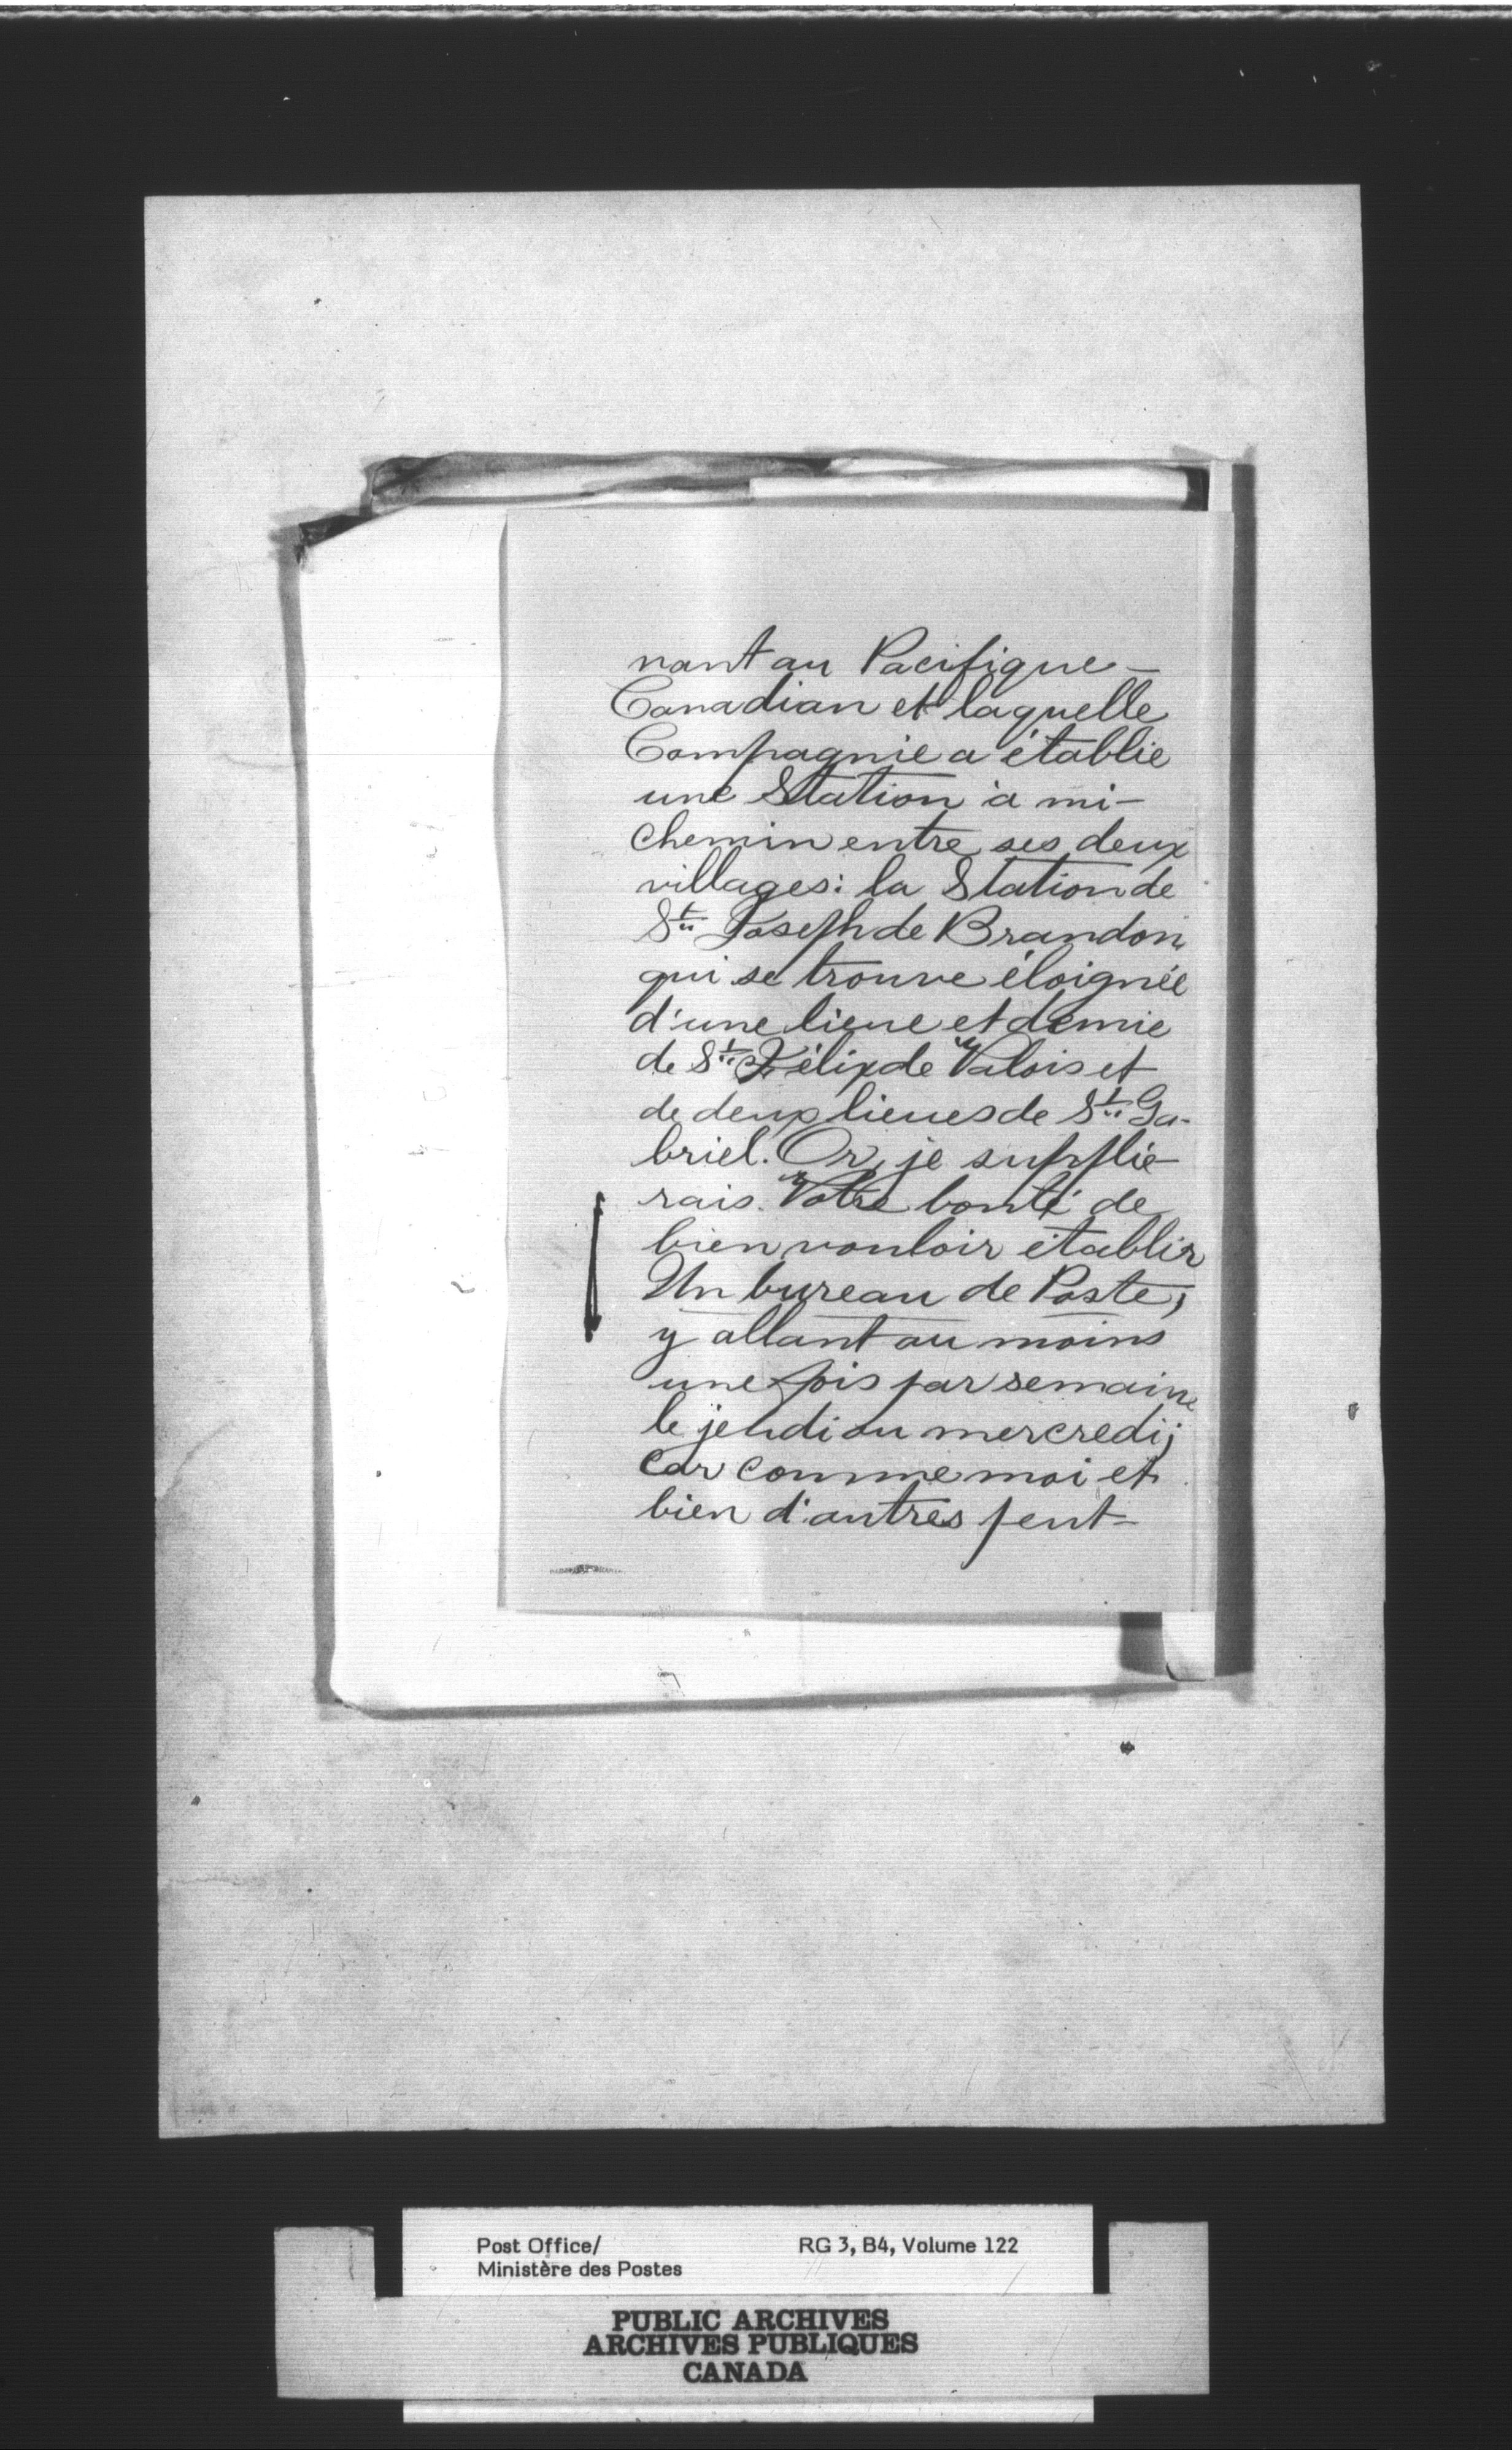 nant au Pacifique-
Canadian et laquelle
Compagnie a établie
une Station à mi-
chemin entre ses deux
villages: la Station de
St Joseph de Brandon
qui se trouve éloignée
d'une lieue et demie
de St Félix de Valois et
de deux lieues de St Ga-
briel. Or, je supplie-
rais Votre bonté de
bien vouloir établir
Un bureau de Poste,
y allant au moins
une fois par semaine
le jeudi ou mercredi;
car comme moi et
bien d'autres peut-
Post Office/ RG 3, B4, Volume 122
Ministère des Postes
PUBLIC ARCHIVES
ARCHIVES PUBLIQUES
CANADA